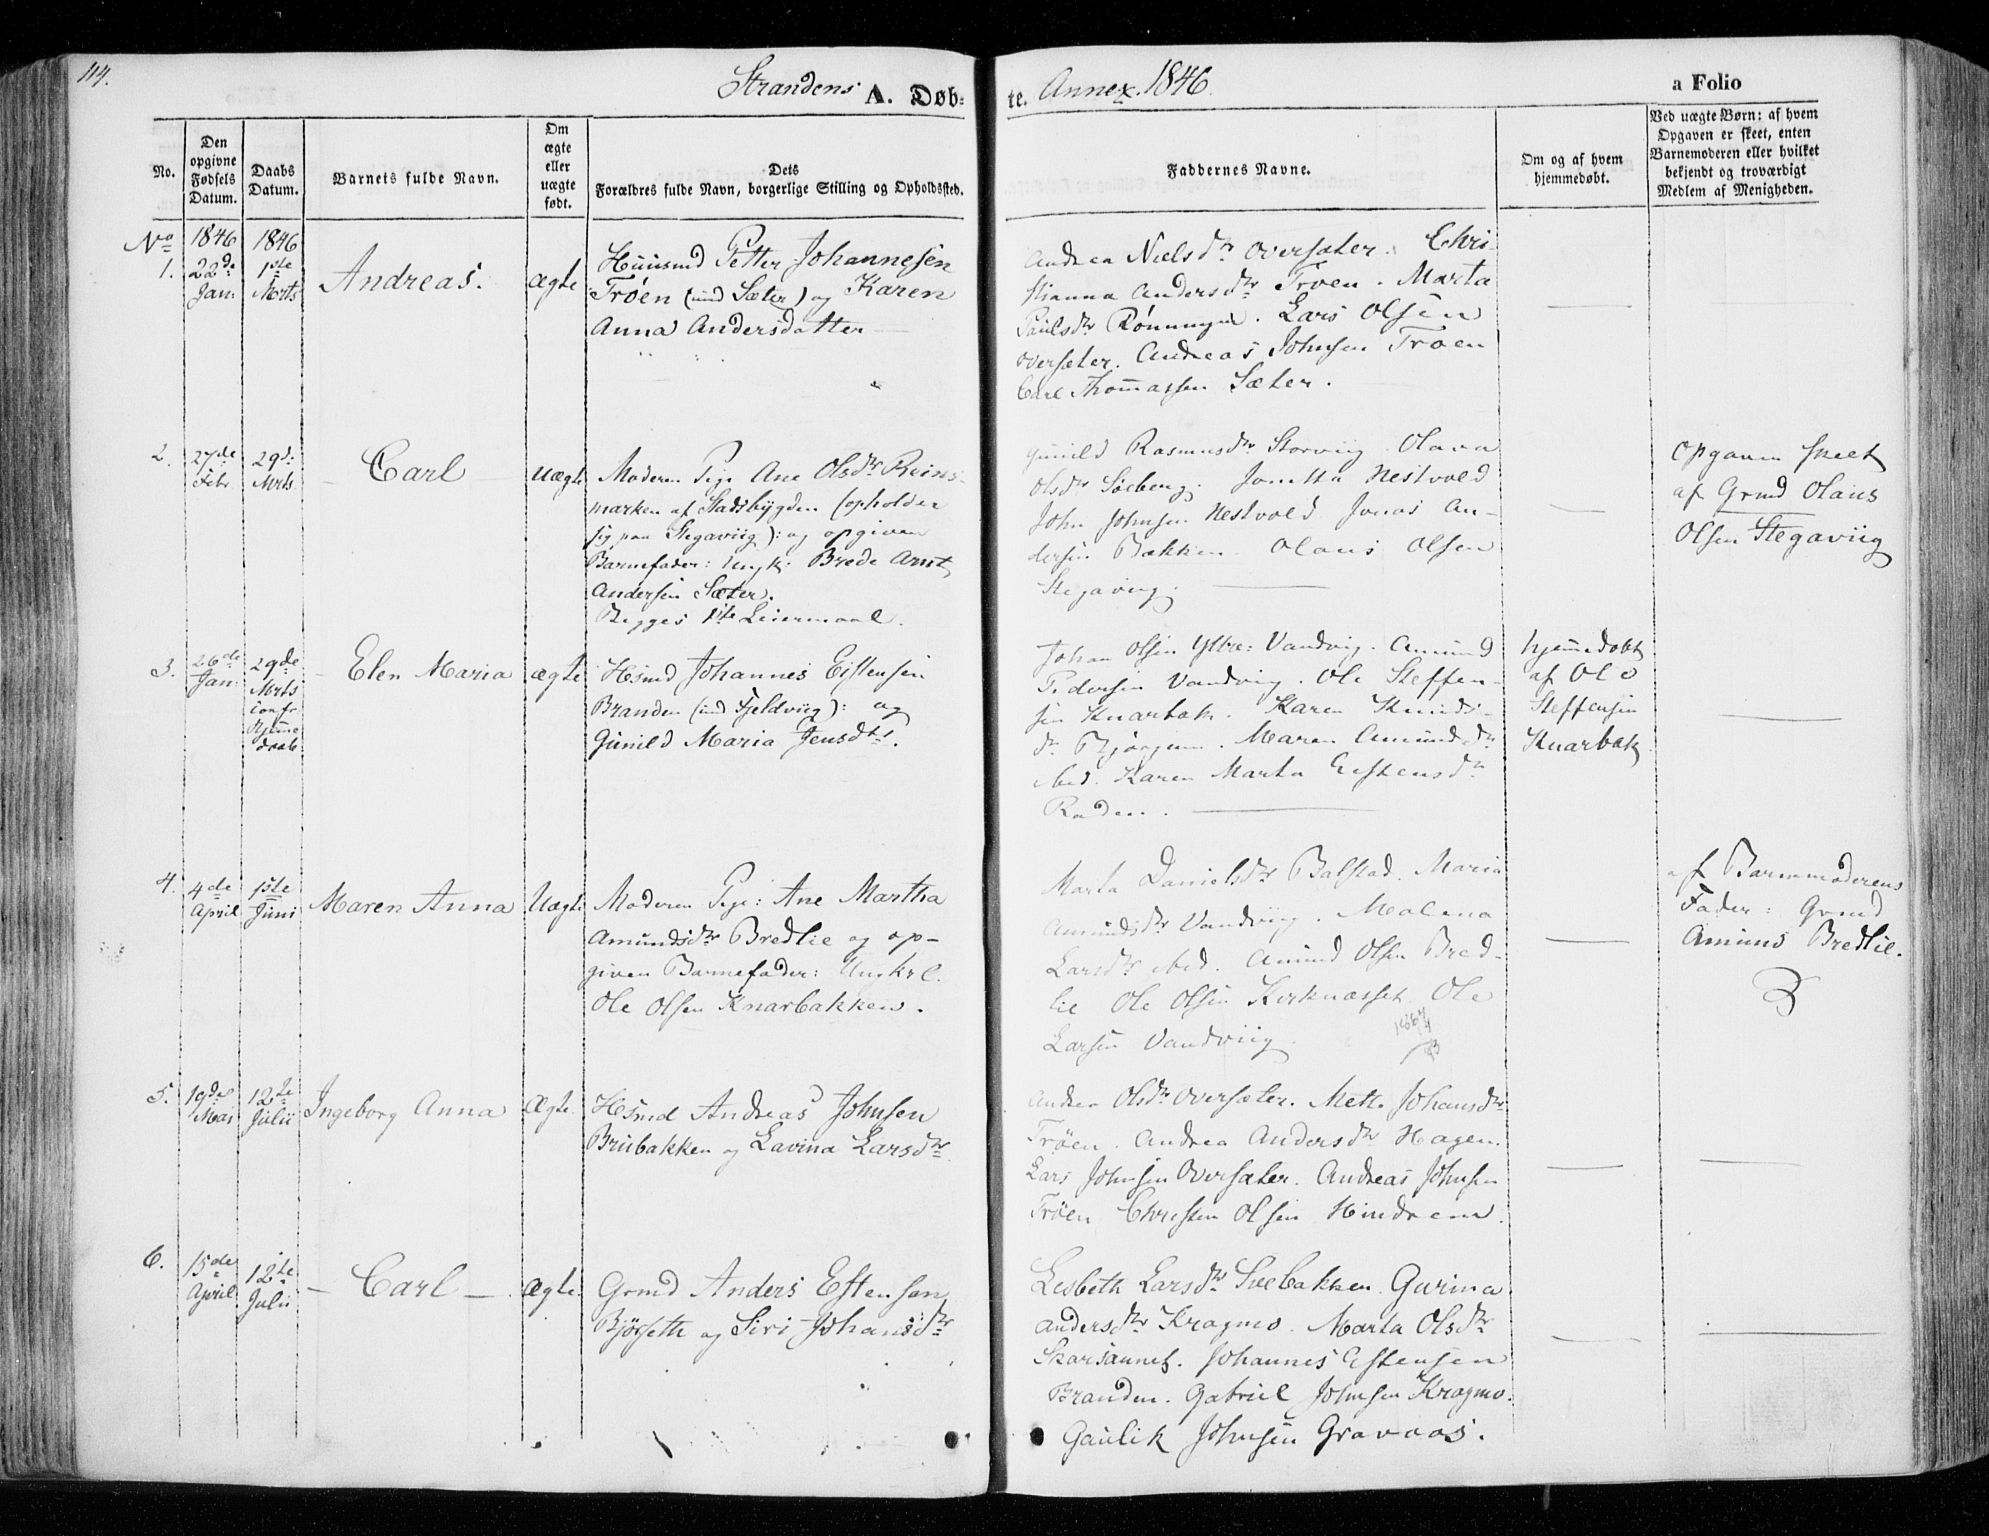 114.
Strandens A. Døb:
te. Annex. 1846.
a Folio
No.
Den opgivne Fødsels Datum.
Daabs Datum.
Barnets fulde Navn.
Om ægte eller uægte født.
Dets Forældres fulde Navn, borgerlige Stilling og Opholdssted.
Faddernes Navne.
Om og af hvem hjemmedøbt.
Ved uægte Børn: af hvem Opgaven er skeet, enten Barnemoderen eller hvilket bekjendt og troværdigt Medlem af Menigheden.
No
1846
1846
1.
22de
Jan:
1ste
Mrts
Andreas.
ægte
Huusmd Petter Johannesen
Trøen (und Sæter) og Karen
Anna Andersdatter
Andrea Nielsdtr Oversæter. Chri
stianna Andersdtr Troen. Marta
Paulsdtr Rönningen. Lars Olsen
Oversæter. Andreas Johnsen Troen
Carl Thomassen Sæter.
2.
27de
Febr.
29de
Mrts
Carl
Uægte
Moderen Pige Ane Olsdtr Reins-
marken af Stadsbygden (opholder
sig paa Stegaviig): og opgiven
Barnefader: Ungk: Brede Arnt
Andersen Sæter.
Begges 1ste Leiermaal.
Gunild Rasmusdtr Storviig. Olava
Olsdtr Soeberg. Jonetta Nestvold
John Johnsen Nestvold Jonas An-
dersen Bakken. Olaus Olsen
Stegaviig.
Opgaven skeet
af Grmd Olaus
Olsen Stegaviig
3.
26de
Jan:
29de
Mrts
confr
Hjemme
daab
Elen Maria
ægte
Hsmd Johannes Eistensen
Branden (und Fjeldviig): og
Gunild Maria Jensdtr.
Johan Olsen Ytre: Vandvig. Amund
Pedersen Vandvig. Ole Steffen-
sen Knarbak. Karen Knuds-
dr Bjørgum. Maren Amundsdtr
ibid. Karen Marta Eistensdtr
Raden.
hjemmedøbt
af Ole
Steffensen
Knarbak
4.
4de
April
1ste
Juni
Maren Anna
Uægte
Moderen Pige: Ane Martha
Amundsdtr Bredlie og op-
given Barnefader: Ungkrl.
Ole Olsen Knarbakken.
Marta Danielsdtr Balstad. Maria
Amundsdtr Vandviig. Malena
Larsdtr ibid. Amund Olsen Bred-
lie Ole Olsen Kirknæsset Ole
Larsen Vandviig.
af Barnemoderens
Fader: Grmd
Amund Bredlie.
5.
19de
Mai
12te
Julii
Ingeborg Anna
Ægte.
Hsmd Andreas Johnsen
Brubakken og Lavina Larsdtr
Andrea Olsdtr Oversæter. Mette Johansdtr
Trøen. Andrea Andersdtr Hagen.
Lars Johnsen Oversæter. Andreas Johnsen
Trøen Christen Olsen Hindrem.
6.
15de
April
12te
Julii
Carl
ægte.
Grmd Anders Estensen
Bjørseth og Siri Johansdtr
Lesbeth Larsdtr Sveebakken. Gurina
Andersdtr Kragmo. Marta Olsdtr
Skarsaunet. Johannes Estensen
Branden. Gabriel Johnsen Kragmo.
Gaulik Johnsen Gravaas.